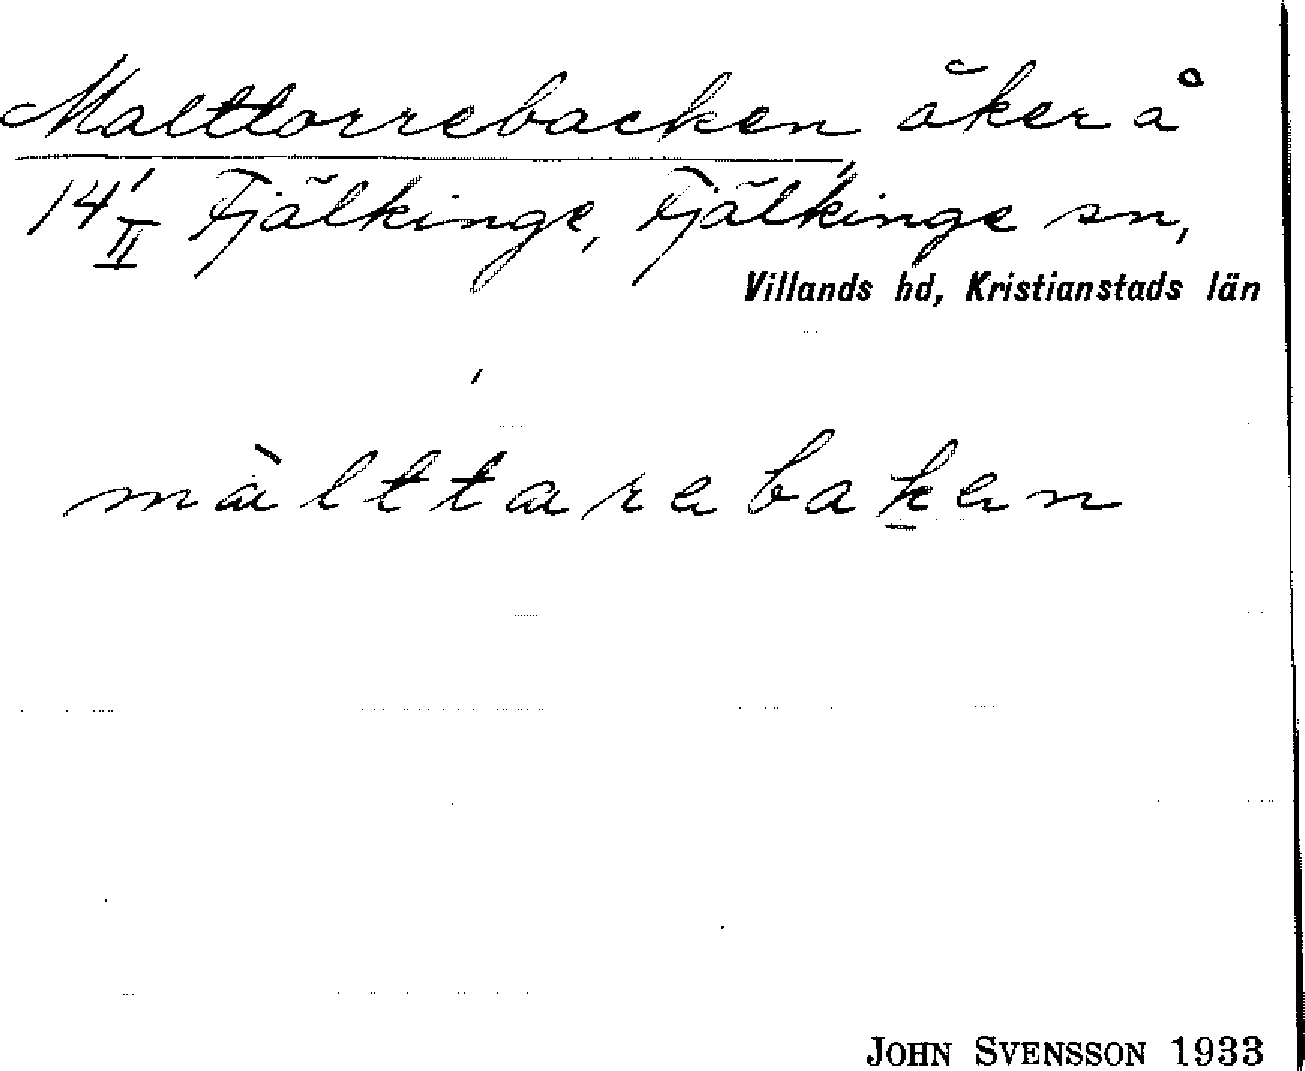 Malttorrebacken, åker å
14' II Fjälkinge, Fjälkinge sn,
Villands hd, Kristianstads län
màlttarebaken
JOHN SVENSSON 1933